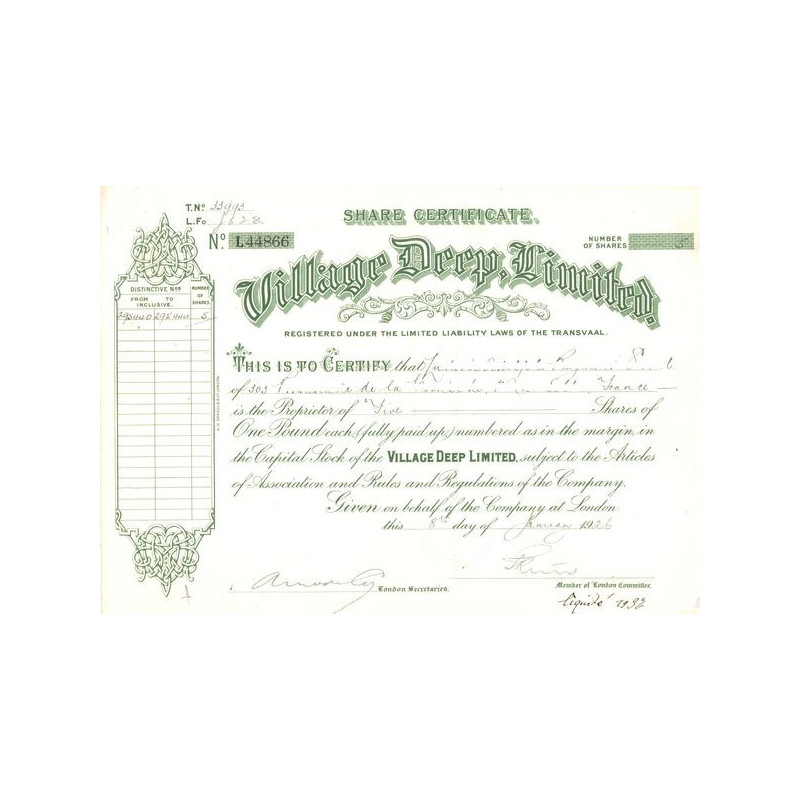 T. Nº 33993
L. Fo
SHARE CERTIFICATE.
Nº L44866
NUMBER OF SHARES 5
Village Deep, Limited.
REGISTERED UNDER THE LIMITED LIABILITY LAWS OF THE TRANSVAAL.
DISTINCTIVE Nos
FROM TO INCLUSIVE.
NUMBER OF SHARES
295440 295444 5
THIS IS TO CERTIFY that
of 303 de la France
is the Proprietor of Five Shares of
One Pound each, (fully paid up,) numbered as in the margin, in
the Capital Stock of the VILLAGE DEEP LIMITED, subject to the Articles
of Association and Rules and Regulations of the Company.
Given on behalf of the Company at London
this 8th day of January 1926
London Secretaries.
Member of London Committee.
liquidé 1932